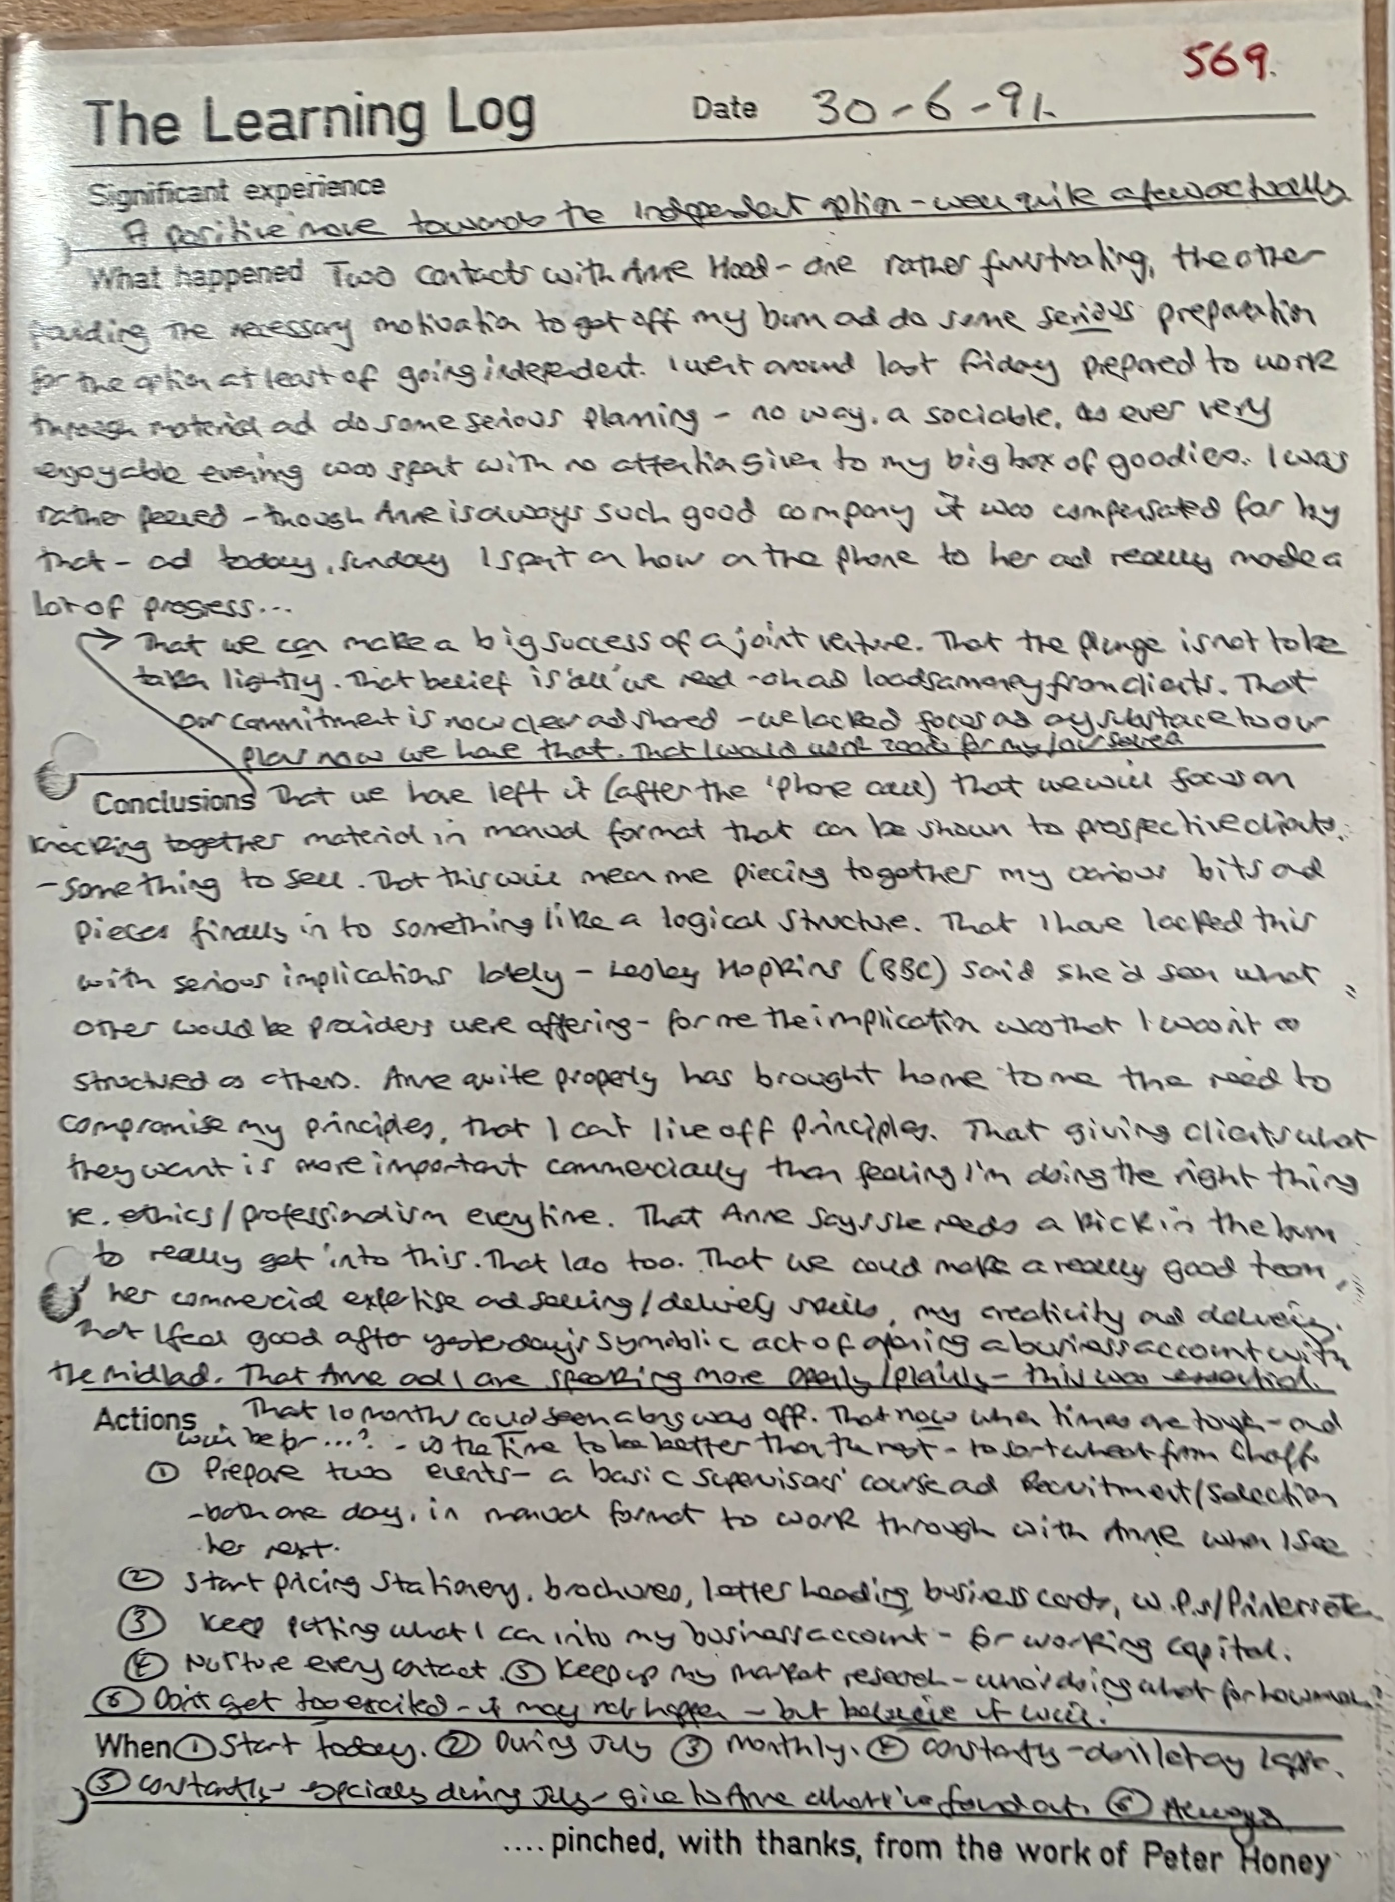 569.
The Learning Log Date 30-6-91.
Significant experience
A positive move towards the independent option - well quite a few actually
What happened Two contacts with Anne Hood - one rather frustrating, the other
the necessary motivation to get off my bum ad do some serious preparation
for the option at least of going independent. I went around last Friday prepared to work
through material ad do some serious planning - no way, a sociable, as ever very
enjoyable evening was spent with no attention given to my big box of goodies. I was
rather peeved - though Anne is always such good company it was compensated for by
that - ad today, Sunday I spent an hour on the phone to her ad really made a
lot of progress...
→ That we can make a big success of a joint venture. That the plunge is not to be
taken lightly. That belief is 'all' we need - oh ad loadsamoney from clients. That
our commitment is now clear ad shared - we lacked focus ad any substance to our
plans now we have that. That I would work for my
Conclusions That we have left it (after the 'phone call) that we will focus on
knocking together material in manual format that can be shown to prospective clients.
- something to sell. That this will mean me piecing together my various bits ad
pieces finally in to something like a logical structure. That I have lacked this
with serious implications lately - Lesley Hopkins (BBC) said she'd seen what
other would be providers were offering - for me the implication was that I wasn't as
structured as others. Anne quite properly has brought home to me the need to
compromise my principles, that I can't live off principles. That giving clients what
they want is more important commercially than feeling I'm doing the right thing
re. ethics/professionalism everytime. That Anne says she needs a kick in the bum
to really get into this. That I do too. That we could make a really good team,
her commercial expertise ad selling/delivery skills, my creativity ad delivery.
That I feel good after yesterday's symoblic act of opening a business account with
the midland. That Anne ad I are speaking more openly/plainly - this was essential.
Actions. That 10 months could seem a long way off. That now when times are tough - ad
will be for ...? - is the time to be better than the rest - to sort wheat from chaff
① Prepare two events - a basic supervisors' course ad Recruitment/Selection
- both one day, in manual format to work through with Anne when I see
her next.
② Start pricing stationery, brochures, letter heading business cards, W.P.s/Printers etc.
③ Keep putting what I can into my business account - for working capital.
④ Nurture every contact. ⑤ Keep up my market research - who's doing what for how much?
⑥ Don't get too excited - it may not happen - but believe it will!
When ① Start today. ② During July ③ monthly. ④ constantly - don't let any
⑤ constantly - especially during July - give to Anne what I've found out. ⑥ Always
.... pinched, with thanks, from the work of Peter Honey